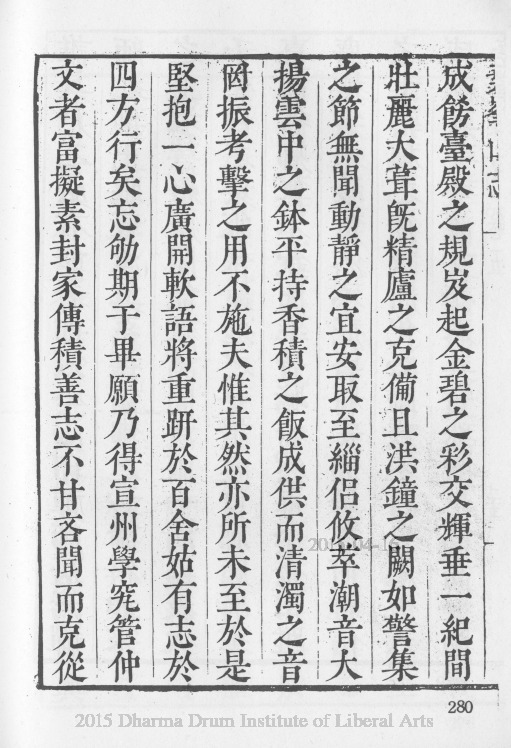 成餝臺殿之規岌起金碧之彩交輝垂一紀間
壯麗大葺既精廬之克備且洪鐘之闕如警集
之節無聞動靜之宜安取至緇侶攸萃潮音大
揚雲中之鉢平持香積之飯成供而清濁之音
罔振考擊之用不施夫惟其然亦所未至於是
堅抱一心廣開軟語將重趼於百舍姑有志於
四方行矣忘劬期于畢願乃得宣州學究管仲
文者富擬素封家傳積善志不甘吝聞而克從
280
2015 Dharma Drum Institute of Liberal Arts